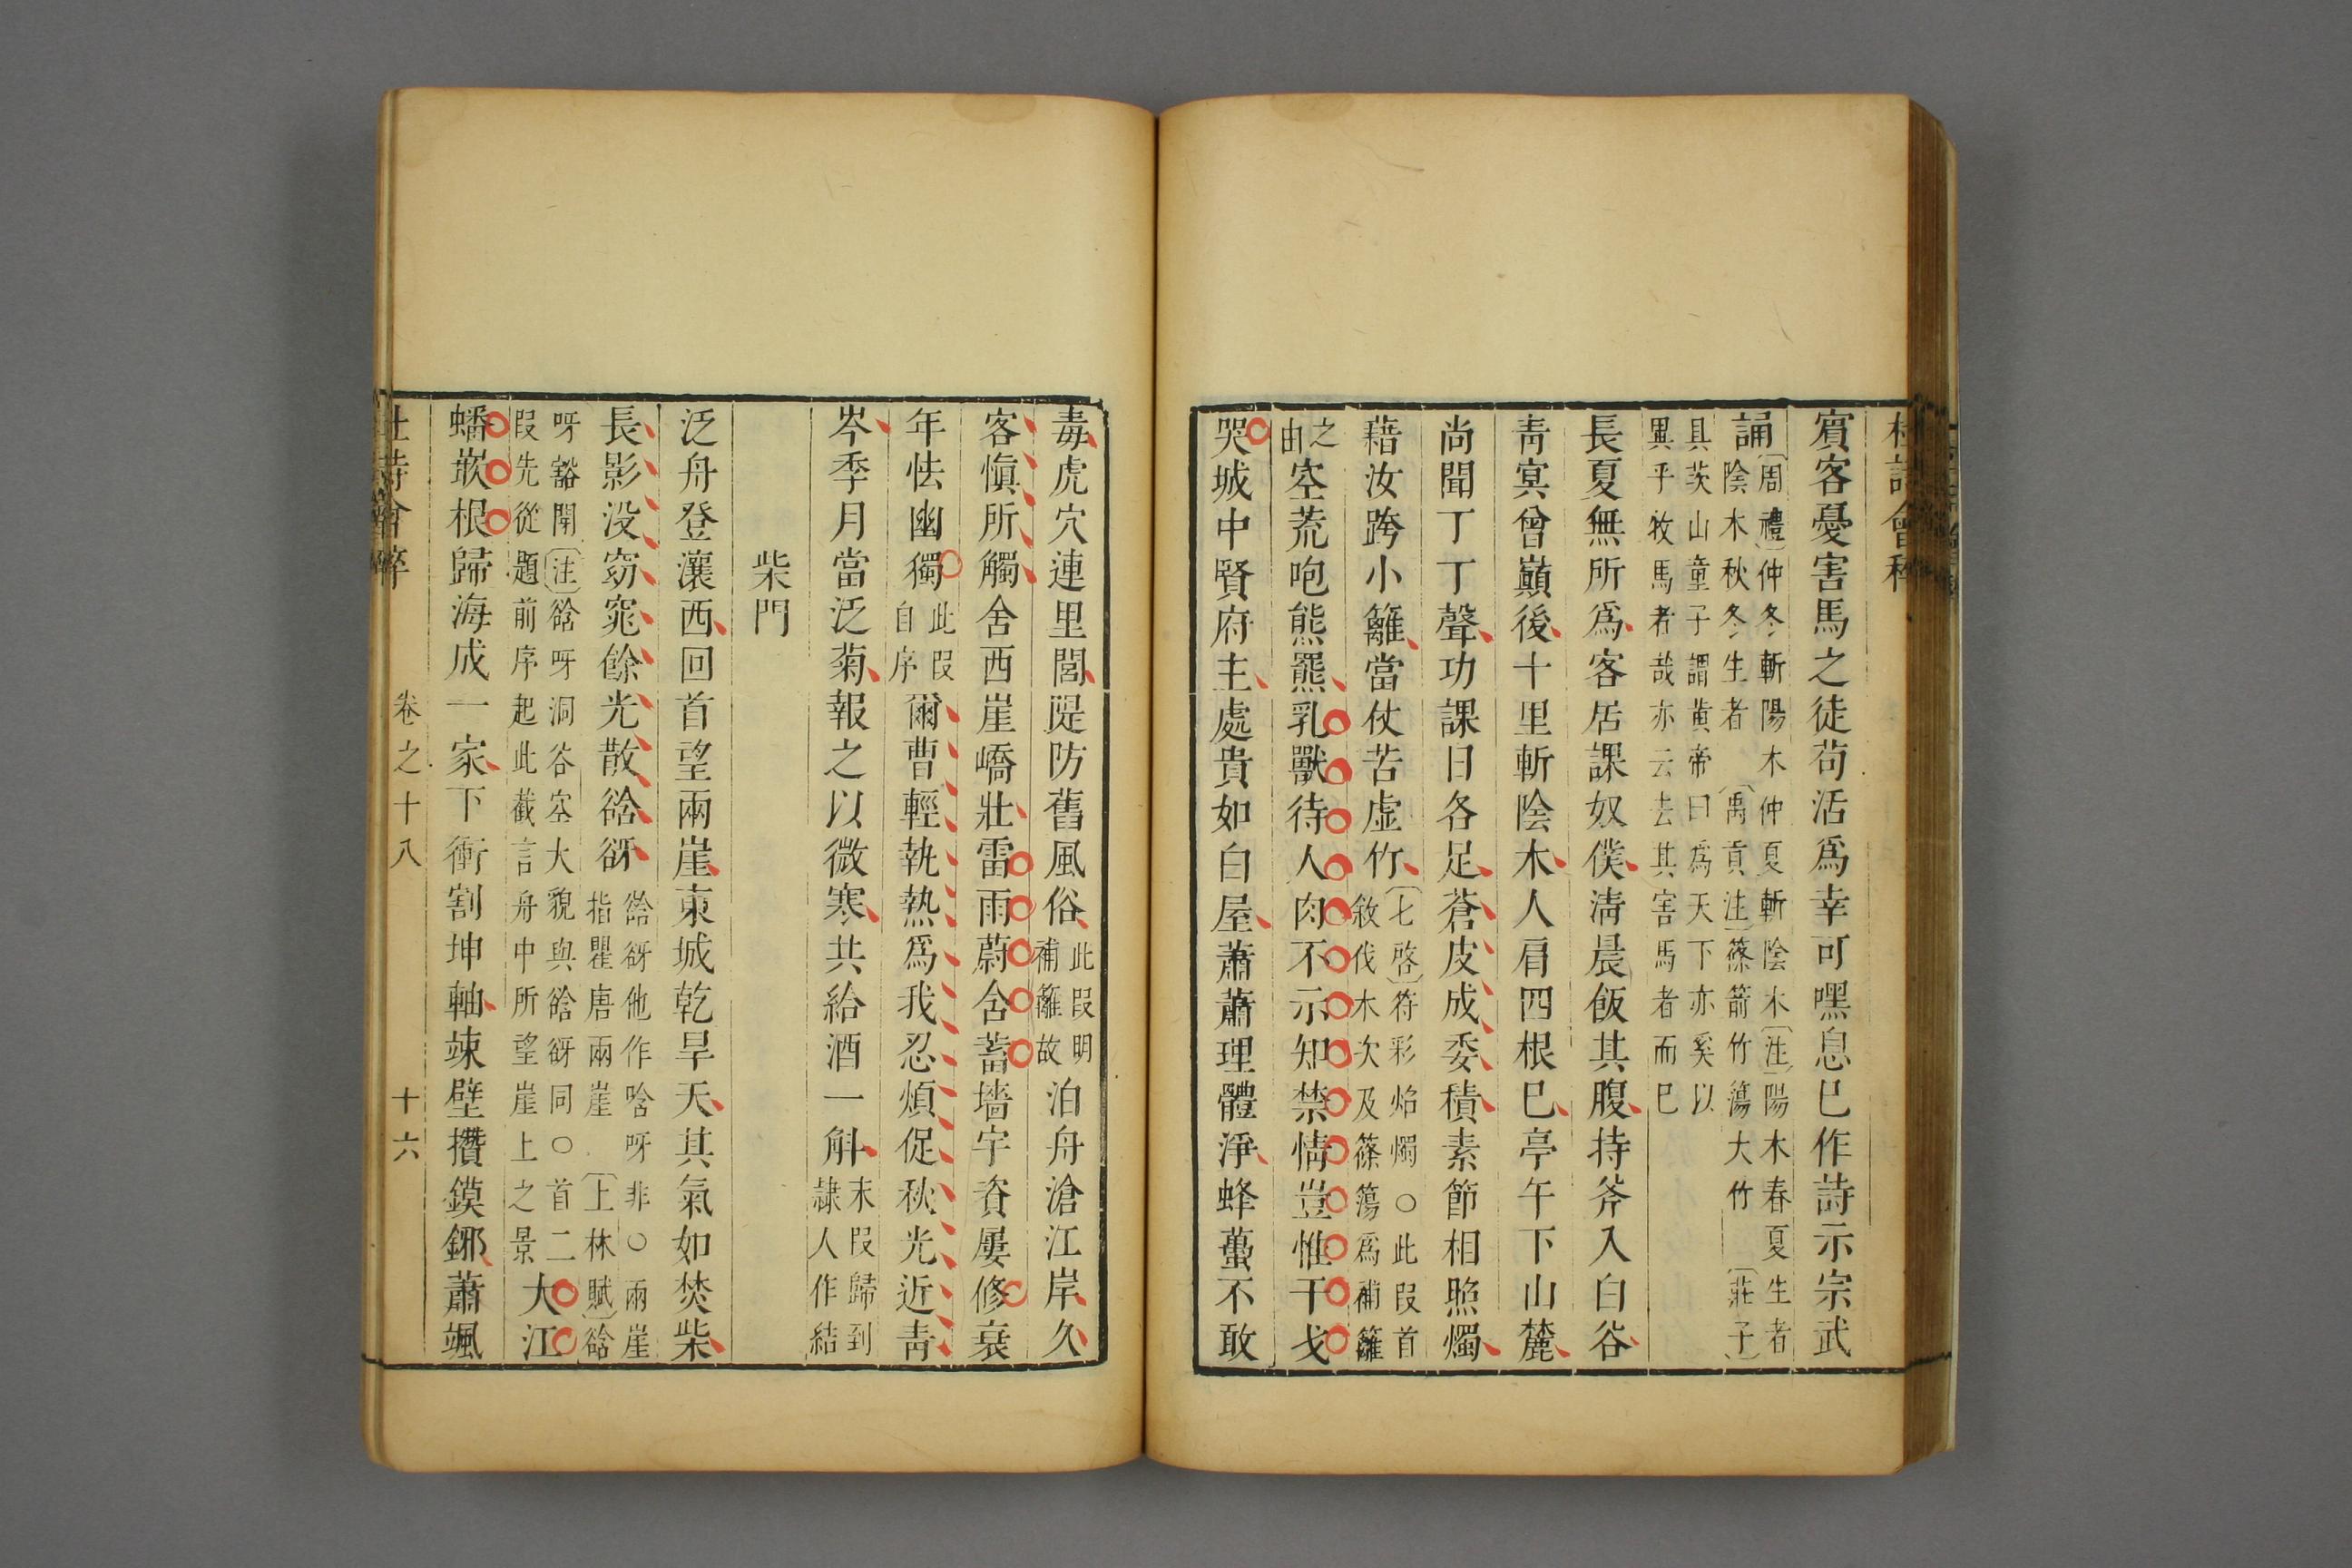 杜詩會稡
賓客憂害馬之徒苟活爲幸可嘿息巳作詩示宗武
誦
〔周禮〕仲冬斬陽木仲夏斬陰木〔注〕陽木春夏生者
陰木秋冬生者〔禹貢注〕篠箭竹簜大竹〔莊子〕
具茨山童子謂黃帝曰爲天下亦奚以
異乎牧馬者哉亦云去其害馬者而巳
長夏無所爲客居課奴僕淸晨飯其腹持斧入白谷
靑冥曾巔後十里斬陰木人肩四根巳亭午下山麓
尚聞丁丁聲功課日各足蒼皮成委積素節相照燭
藉汝跨小籬當仗苦虛竹
〔七啓〕符彩焰燭○此叚首
敘伐木次及篠簜爲補籬
之
由
空荒咆熊羆乳獸待人肉不示知禁情豈惟干戈
哭城中賢府主處貴如白屋蕭蕭理體淨蜂蠆不敢
毒虎穴連里閭隄防舊風俗
此叚明
補籬故
泊舟滄江岸久
客愼所觸舍西崖嶠壯雷雨蔚含蓄墻宇資屢修衰
年怯幽獨
此叚
自序
爾曹輕執熱爲我忍煩促秋光近靑
岑季月當泛菊報之以微寒共給酒一斛
末叚歸到
隷人作結
柴門
泛舟登瀼西回首望兩崖東城乾旱天其氣如焚柴
長影没窈窕餘光散谽谺
谽谺他作唅呀非○兩崖
指瞿唐兩崖〔上林賦〕谽
呀豁閜〔注〕谽呀洞谷空大貌與谽谺同○首二
叚先從題前序起此截言舟中所望崖上之景
大江
蟠嵌根歸海成一家下衝割坤軸竦壁攢鏌鋣蕭颯
杜詩會稡
卷之十八
十六